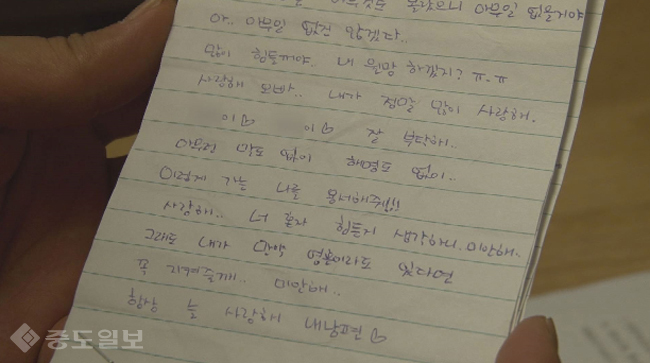 몰랐으니 아무일 없을거야
아.. 아무일 없진 않겠다..
많이 힘들꺼야.. 내 원망 하겠지? ㅠ.ㅠ
사랑해 오빠.. 내가 정말 많이 사랑해.
이♡ 이♡ 잘 부탁해..
아무런 말도 없이 해명도 없이..
이렇게 가는 나를 용서해줘!!!
사랑해.. 너 혼자 힘든지 생각하니 미안해.
그래도 내가 만약 영혼이라도 있다면
꼭 지켜줄께.. 미안해..
항상 늘 사랑해 내남편♡
중도일보